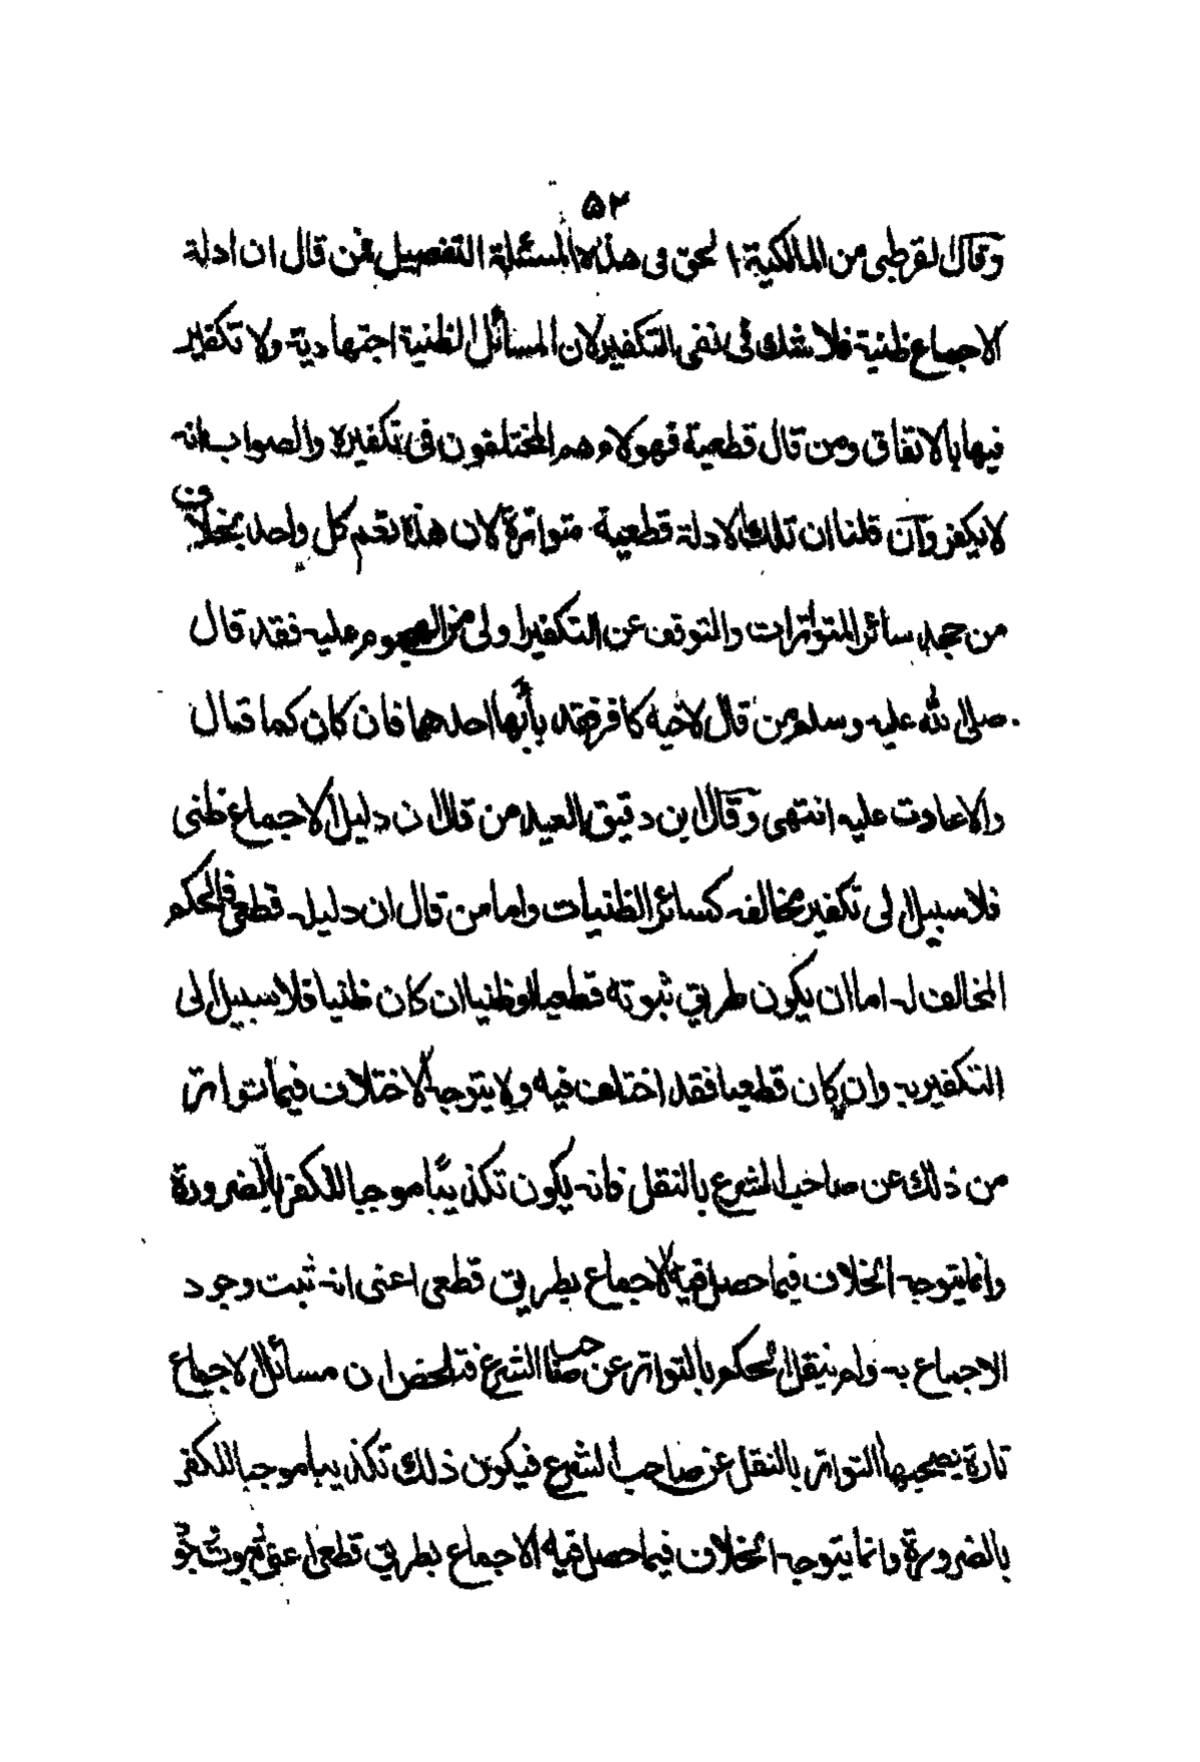 ۵۲
وقال القرطبى من المالكية الحق فى هذه المسئلة التفصيل فمن قال ان ادلة
الاجماع ظنية فلا شك فى نفى التكفير لان المسائل الظنية اجتهادية ولا تكفير
فيها بالاتفاق ومن قال قطعية فهولاء هم المختلفون فى تكفيره والصواب انه
لا يكفر وان قلنا ان تلك الادلة قطعية متواترة لان هذا نعم كل واحد بخلاف
من جحد سائر المتواترات والتوقف عن التكفير اولى من الهجوم عليه فقد قال
صلى الله عليه وسلم من قال لاخيه كافر فقد باء بها احدهما فان كان كما قال
والا عادت عليه انتهى وقال ابن دقيق العيد من قال ان دليل الاجماع ظنى
فلا سبيل الى تكفير مخالفه كسائر الظنيات واما من قال ان دليله قطعى فالحكم
المخالف له اما ان يكون طريق ثبوته قطعيا او ظنيا ان كان ظنيا فلا سبيل الى
التكفير به وان كان قطعيا فقد اختلف فيه ولا يتوجه الاختلاف فيما تواتر
من ذلك عن صاحب الشرع بالنقل فانه يكون تكذيبا موجبا للكفر بالضرورة
وانما يتوجه الخلاف فيما حصل فيه الاجماع بطريق قطعى اعنى انه ثبت وجود
الاجماع به ولم ينقل الحكم بالتواتر عن صاحب الشرع فتلخص ان مسائل الاجماع
تارة يصحبها التواتر بالنقل عن صاحب الشرع فيكون ذلك تكذيبا موجبا للكفر
بالضرورة وانما يتوجه الخلاف فيما حصل فيه الاجماع بطريق قطعى اعنى ثبوت